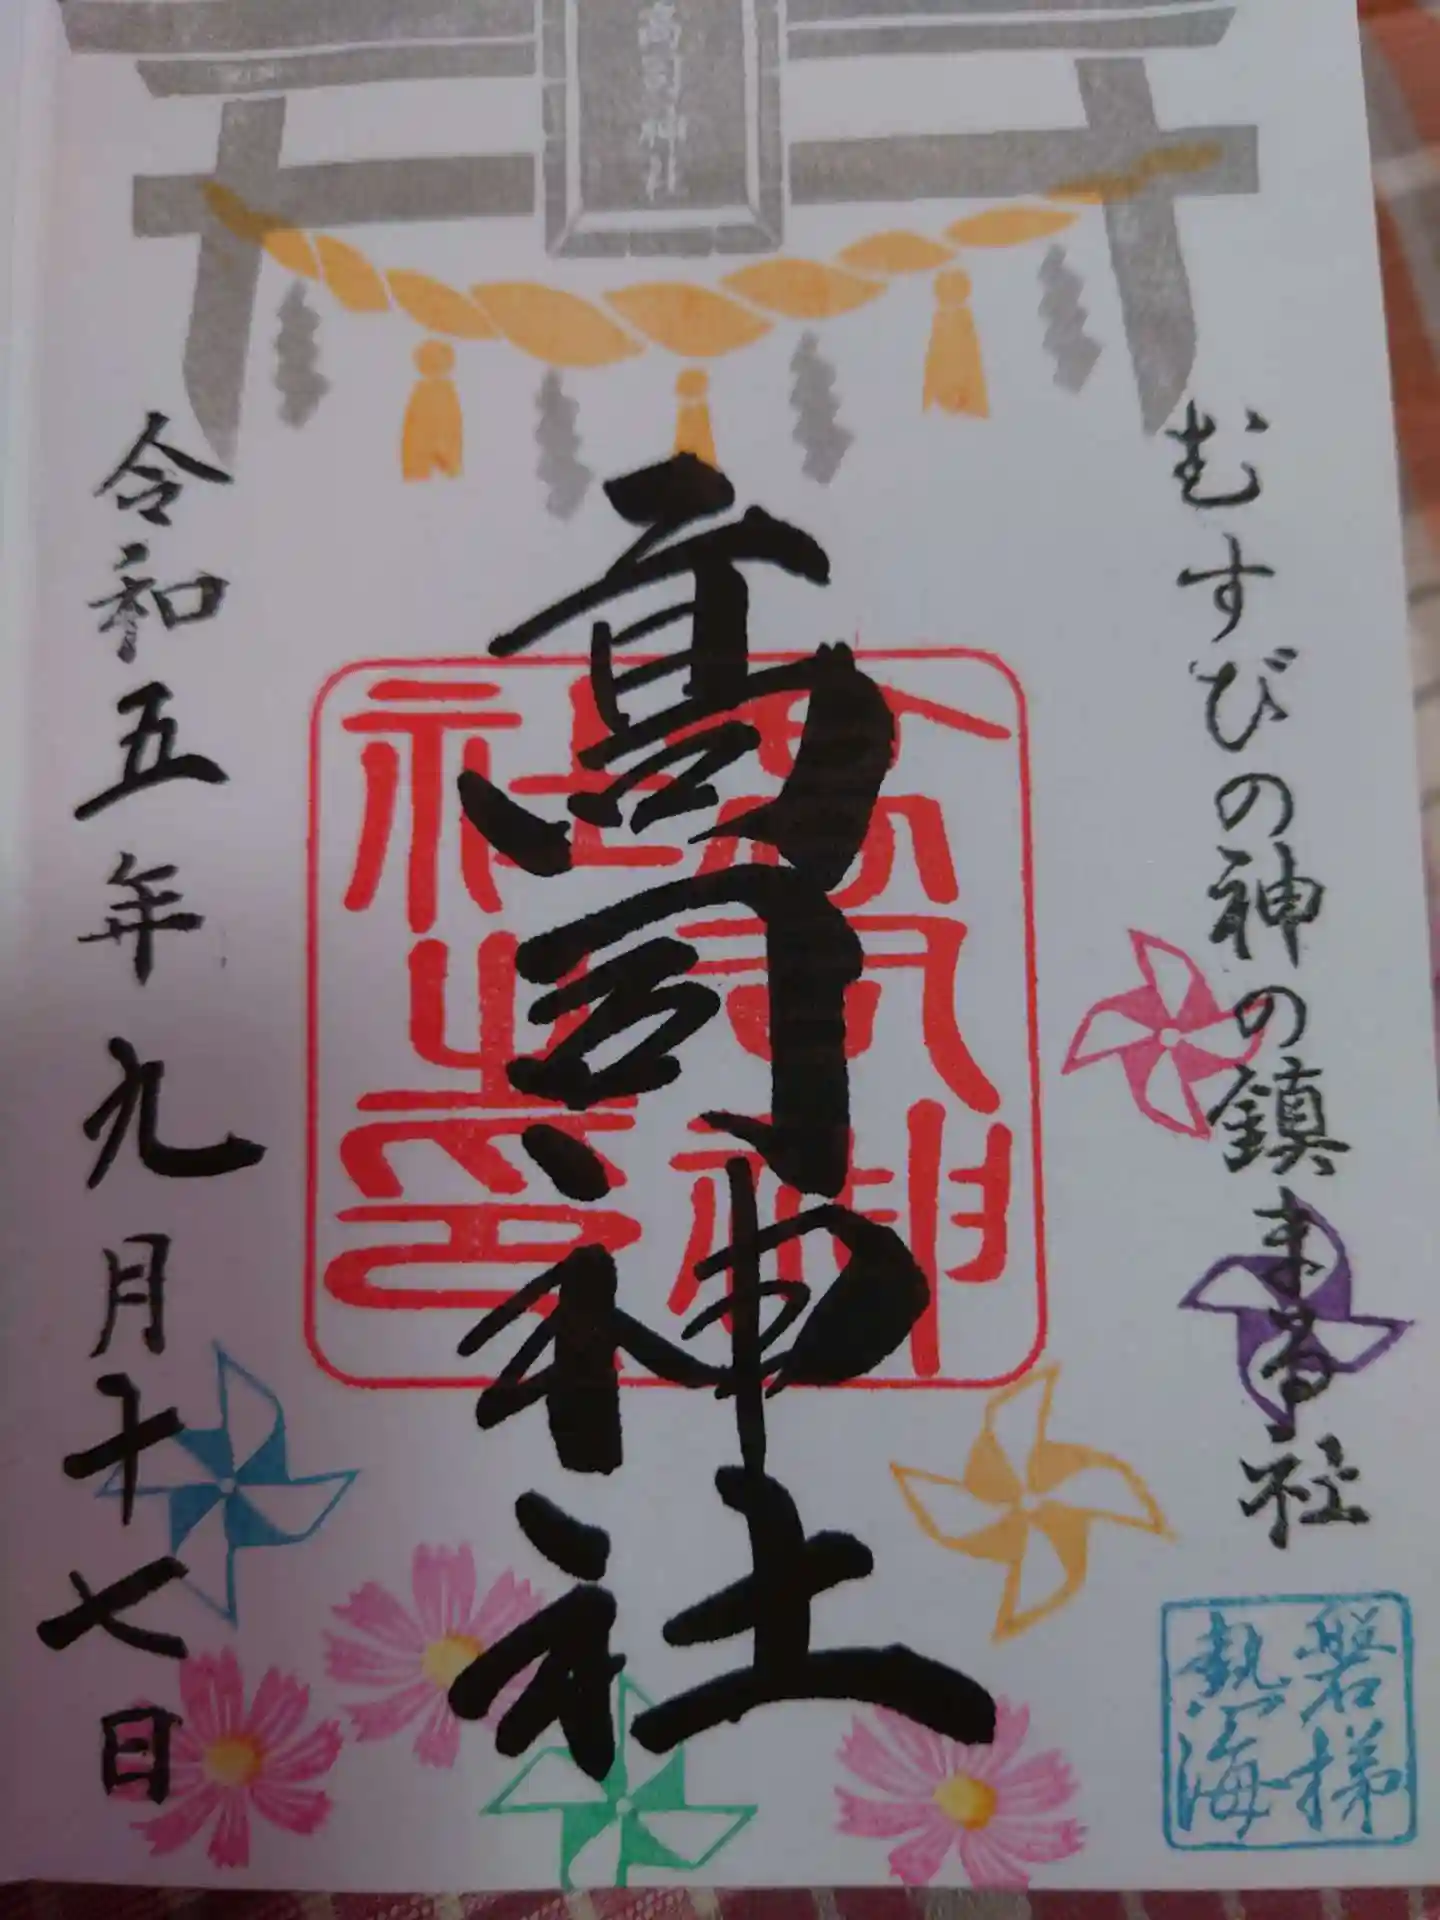 高司神社
むすびの神の鎮まる社
高司神社
高司神社之印
令和五年九月十七日
磐梯
熱海